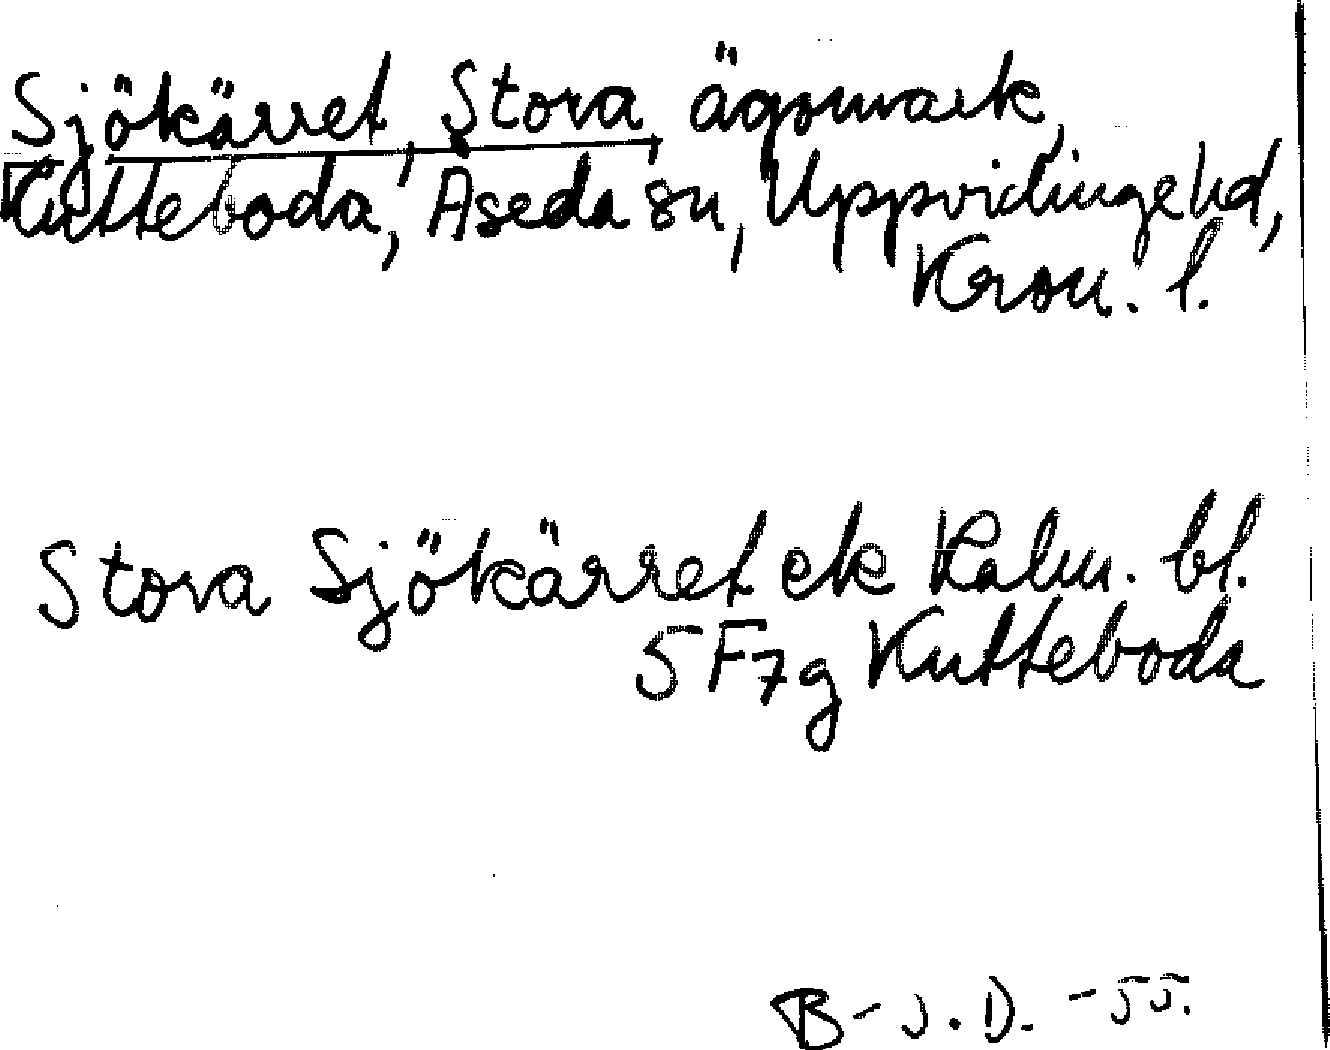 Sjökärret, Stora, ägomark,
Kutteboda, Åseda sn, Uppvidinge hd,
Kron. l.
Stora Sjökärret ek Kalm. bl.
5F7g Kutteboda
B-J.D. -55.